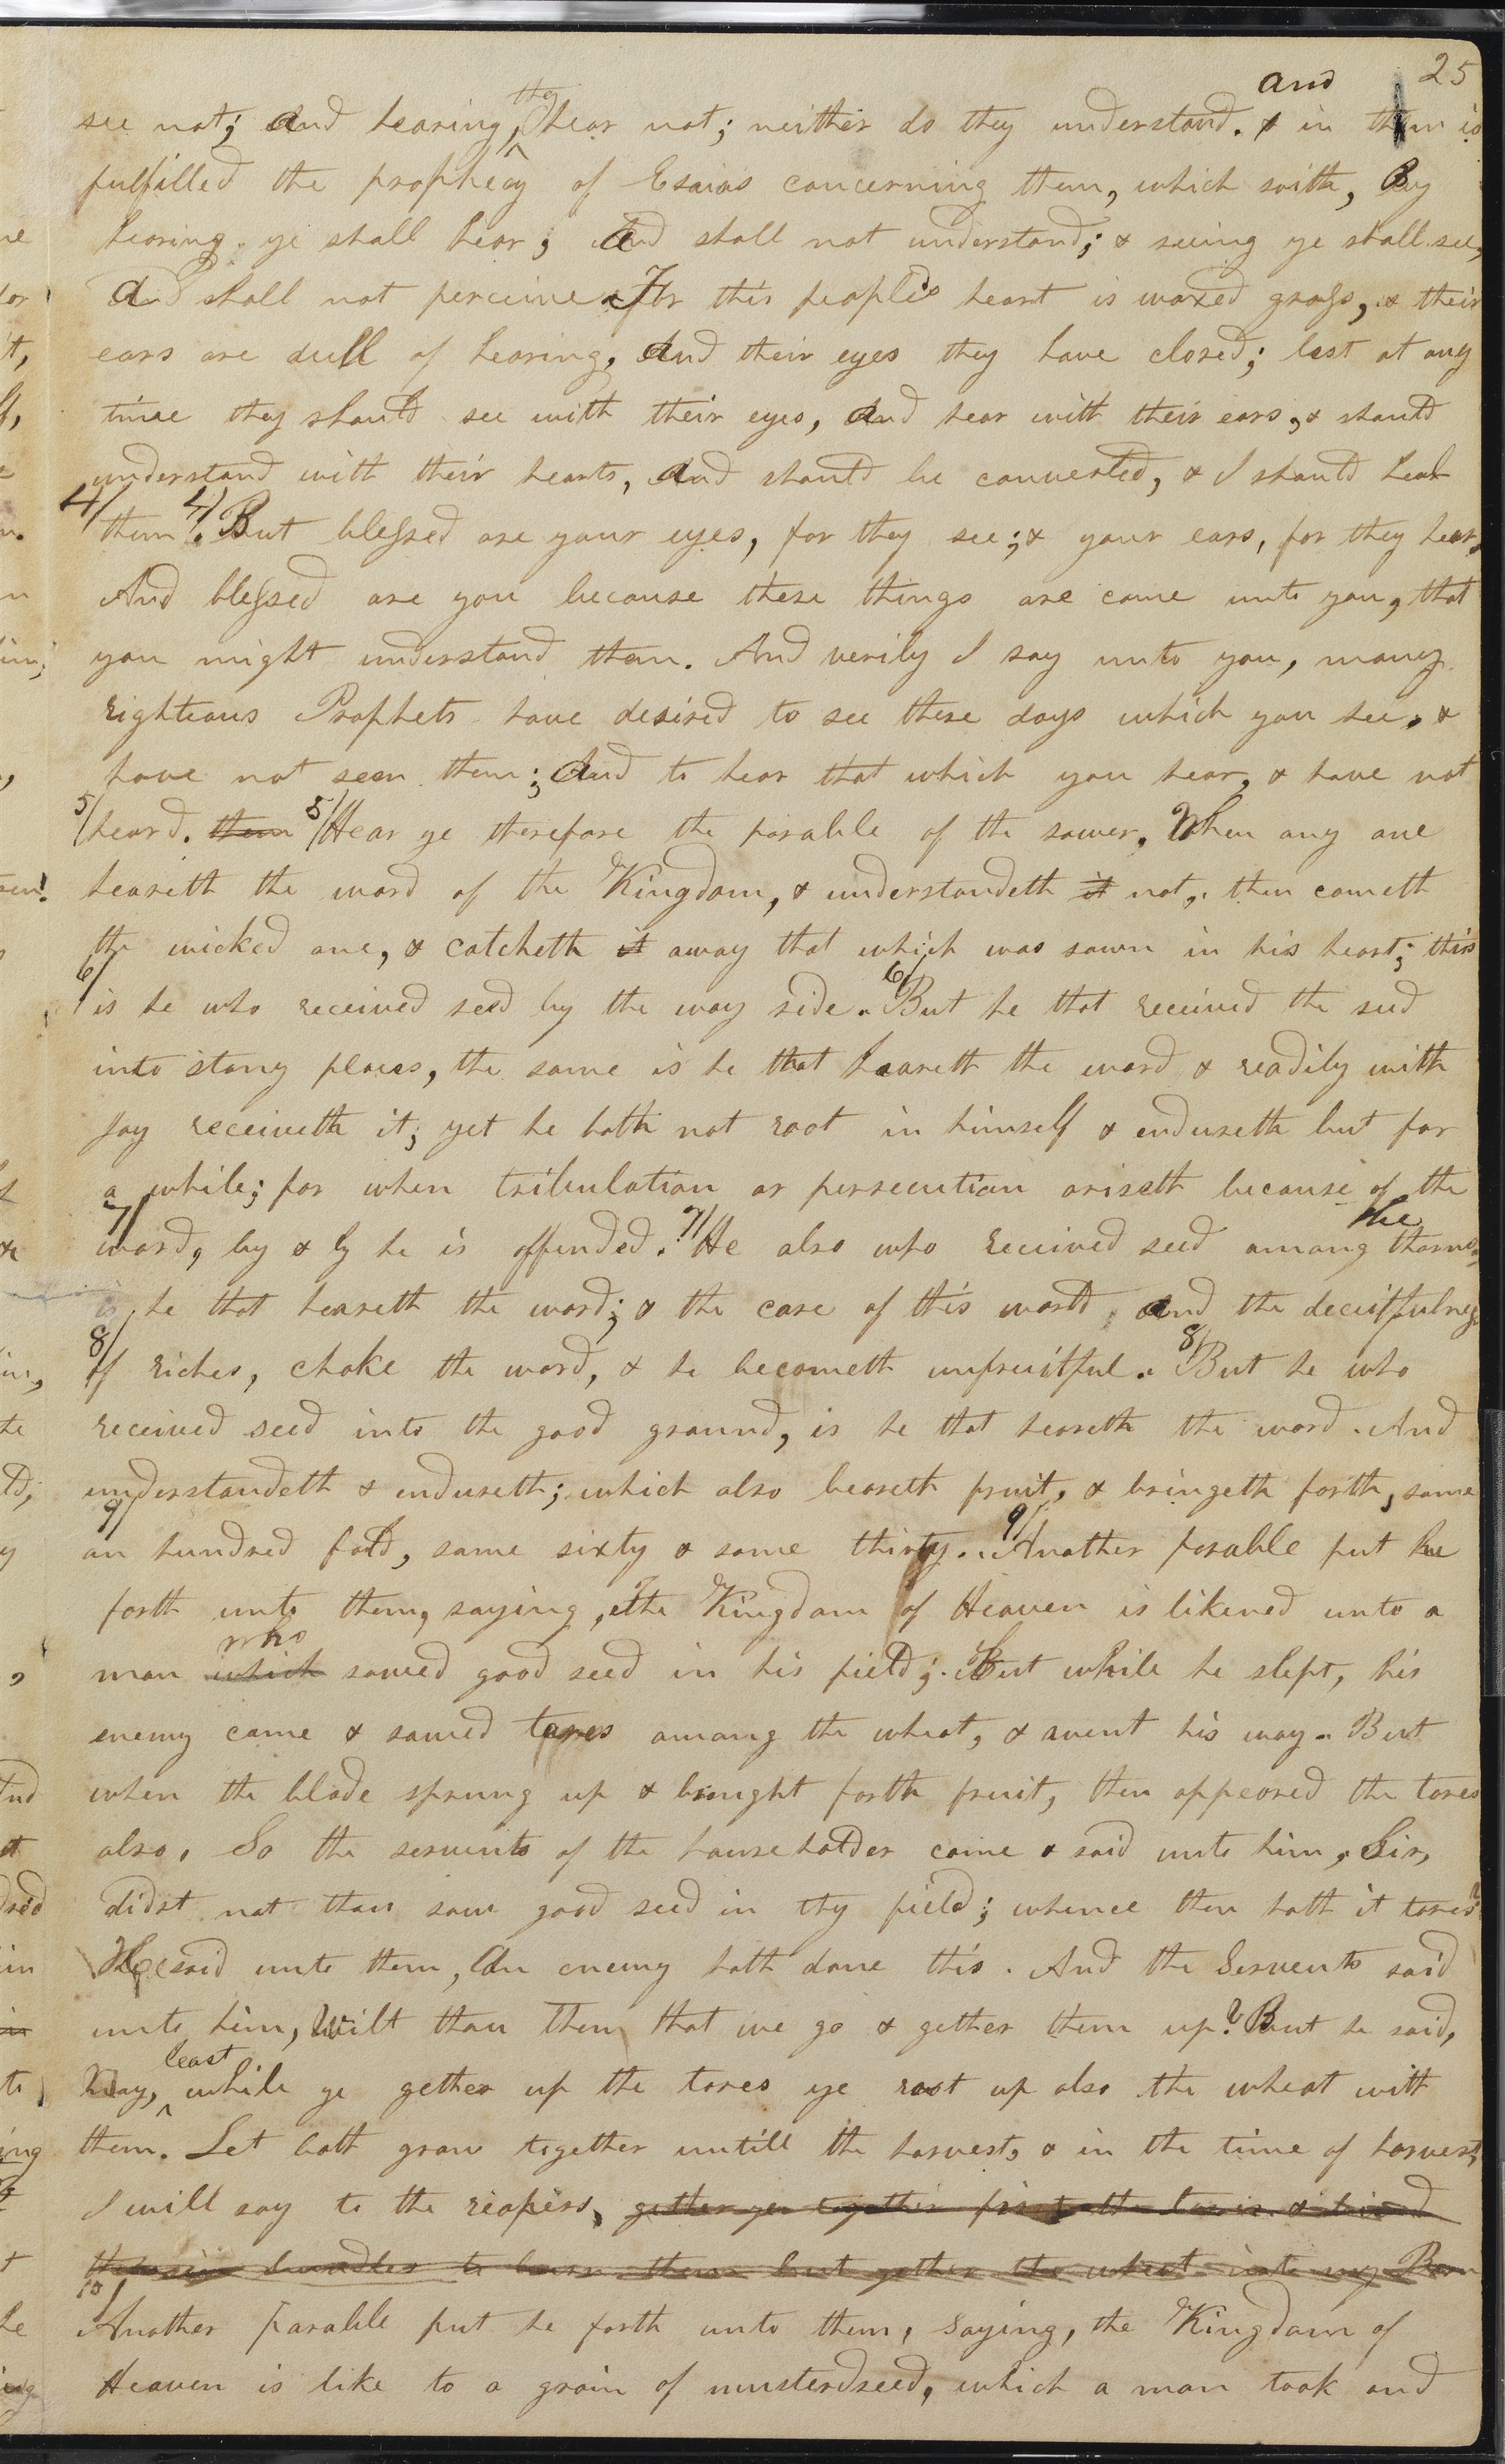 25
see not; and hearing, they hear not; neither do they understand. and in them is
fulfilled the prophecy of Esaias concerning them, which saith, By
hearing ye shall hear; and shall not understand; & seeing ye shall see,
and shall not perceive. For this people's heart is waxed gross, & their
ears are dull of hearing, and their eyes they have closed; lest at any
time they should see with their eyes, and hear with their ears, & should
understand with their hearts, and should be converted, & I should heal
4/ them. 4/ But blessed are your eyes, for they see; & your ears, for they hear,
And blessed are you because these things are come unto you, that
you might understand them. And verily I say unto you, many
righteous Prophets have desired to see these days which you see, &
have not seen them; and to hear that which you hear, & have not
5/ heard. them 5/ Hear ye therefore the parable of the sower, When any one
heareth the word of the Kingdom, & understandeth it not, then cometh
the wicked one, & catcheth it away that which was sown in his heart; this
6/ is he who received seed by the way side. 6/ But he that received the seed
into stony places, the same is he that heareth the word & readily with
joy receiveth it; yet he hath not root in himself & endureth but for
a while; for when tribulation or persecution ariseth because of the
7/ word, by & by he is offended. 7/ He also who received seed among the thorns,
is he that heareth the word; & the care of this world, and the deceitfulness
8/ of riches, choke the word, & he becometh unfruitful. 8/ But he who
received seed into the good ground, is he that heareth the word. And
understandeth & endureth; which also beareth fruit, & bringeth forth, some
9/ an hundred fold, some sixty & some thirty. 9/ Another parable put he
forth unto them, saying, the Kingdom of Heaven is likened unto a
man which who sowed good seed in his field; But while he slept, his
enemy came & sowed tares among the wheat, & went his way. But
when the blade sprung up & brought forth fruit, then appeared the tares
also. So the servents of the householder came & said unto him, Sir,
didst not thou sow good seed in thy field; whence then hath it tares?
He said unto them, An enemy hath done this. And the Servents said
unto him, Wilt thou then that we go & gether them up? But he said,
Nay, least while ye gether up the tares ye root up also the wheat with
them. Let both grow together untill the harvest, & in the time of harvest,
I will say to the reapers, gether ye together first the tares & bind
them in bundles to burn them but gether the wheat into my Barn
10/ Another parable put he forth unto them, saying, the Kingdom of
Heaven is like to a grain of musterdseed, which a man took and